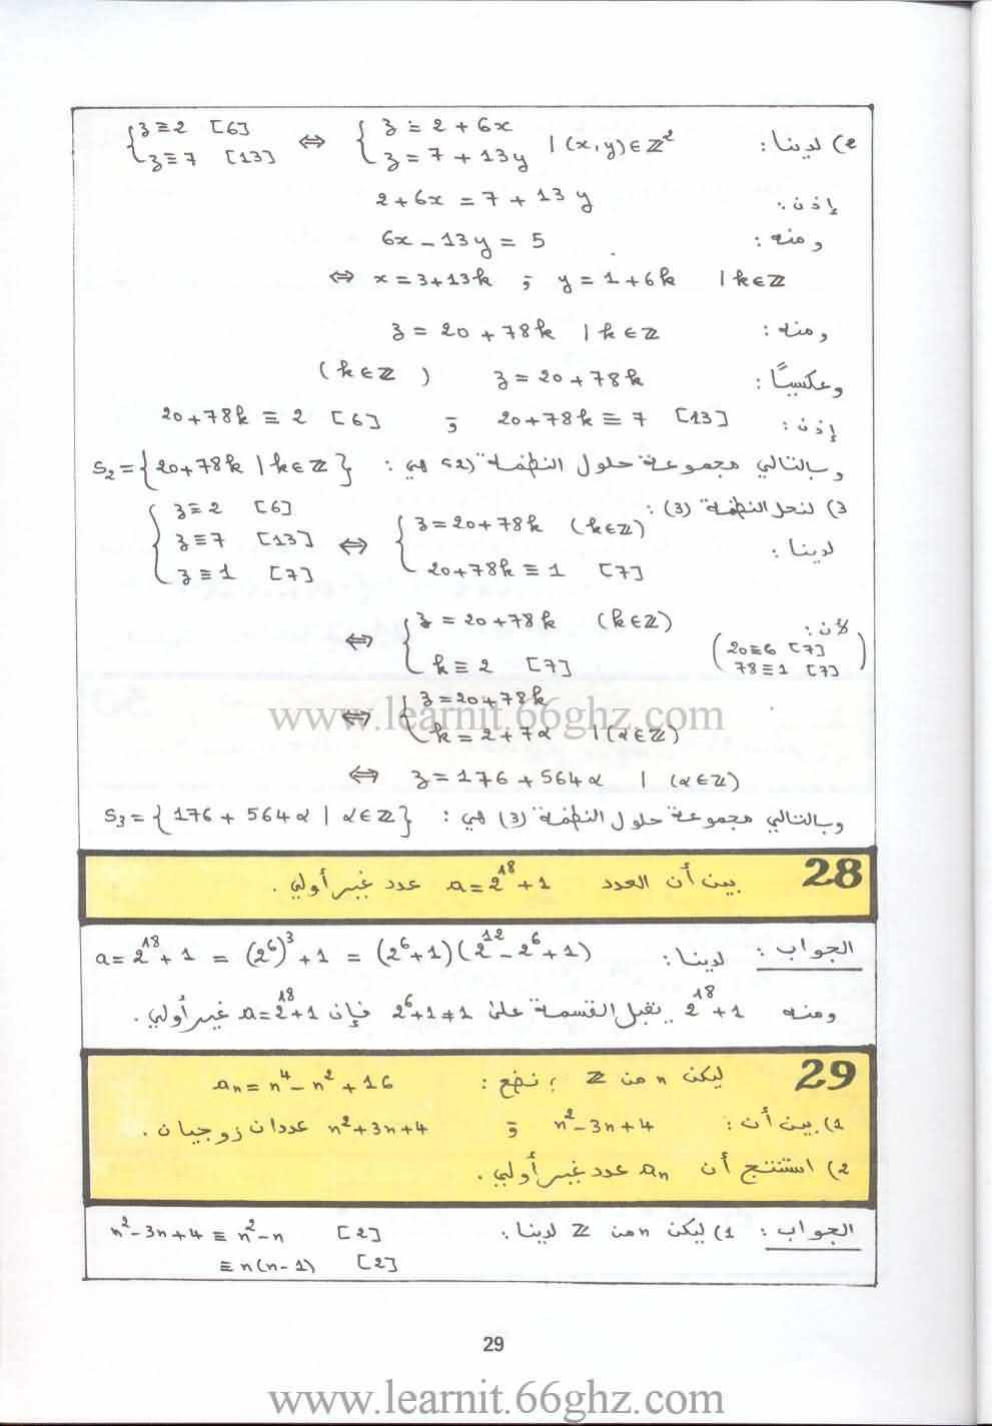 2) لدينا : { z ≡ 2 [6] ; z ≡ 7 [13] ⇔ { z = 2 + 6x ; z = 7 + 13y | (x,y) ∈ ℤ²
إذن : 2 + 6x = 7 + 13y
و منه : 6x - 13y = 5
⇔ x = 3 + 13k ; y = 1 + 6k | k ∈ ℤ
و منه : z = 20 + 78k | k ∈ ℤ
وعكسيًا : z = 20 + 78k (k ∈ ℤ)
إذن : 20 + 78k ≡ 7 [13] و 20 + 78k ≡ 2 [6]
و بالتالي مجموعة حلول النظمة (2) هي : S₂ = {20 + 78k | k ∈ ℤ}
3) لنحل النظمة (3) :
لدينا : { z ≡ 2 [6] ; z ≡ 7 [13] ; z ≡ 1 [7] ⇔ { z = 20 + 78k (k ∈ ℤ) ; 20 + 78k ≡ 1 [7]
⇔ { z = 20 + 78k (k ∈ ℤ) ; k ≡ 2 [7] لأن : (20 ≡ 6 [7] ; 78 ≡ 1 [7])
⇔ { z = 20 + 78k ; k = 2 + 7α | (α ∈ ℤ)
www.learnit.66ghz.com
⇔ z = 176 + 564α | (α ∈ ℤ)
وبالتالي مجموعة حلول النظمة (3) هي : S₃ = {176 + 564α | α ∈ ℤ}
28 بين أن العدد a = 2¹⁸ + 1 عدد غير أولي .
الجواب : لدينا : a = 2¹⁸ + 1 = (2⁶)³ + 1 = (2⁶ + 1)(2¹² - 2⁶ + 1)
ومنه 2¹⁸ + 1 يقبل القسمة على 2⁶ + 1 ≠ 1 فإن a = 2¹⁸ + 1 غير أولي .
29 ليكن n من ℤ ; نضع : aₙ = n⁴ - n² + 16
1) بين أن : n² - 3n + 4 و n² + 3n + 4 عددان زوجيان .
2) استنتج أن aₙ عدد غير أولي .
الجواب : 1) ليكن n من ℤ لدينا : n² - 3n + 4 ≡ n² - n [2]
≡ n(n - 1) [2]
29
www.learnit.66ghz.com